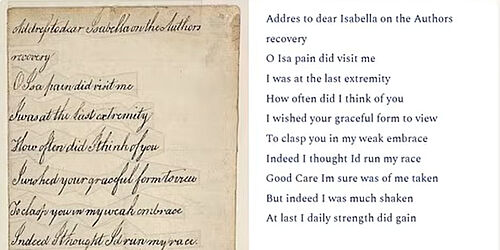 Addreſs to dear Isabella on the Authors
recovery
O Isa pain did visit me
I was at the last extremity
How often did I think of you
I wished your graceful form to view
To clasp you in my weak embrace
Indeed I thought Id run my race.
Addres to dear Isabella on the Authors
recovery
O Isa pain did visit me
I was at the last extremity
How often did I think of you
I wished your graceful form to view
To clasp you in my weak embrace
Indeed I thought Id run my race
Good Care Im sure was of me taken
But indeed I was much shaken
At last I daily strength did gain